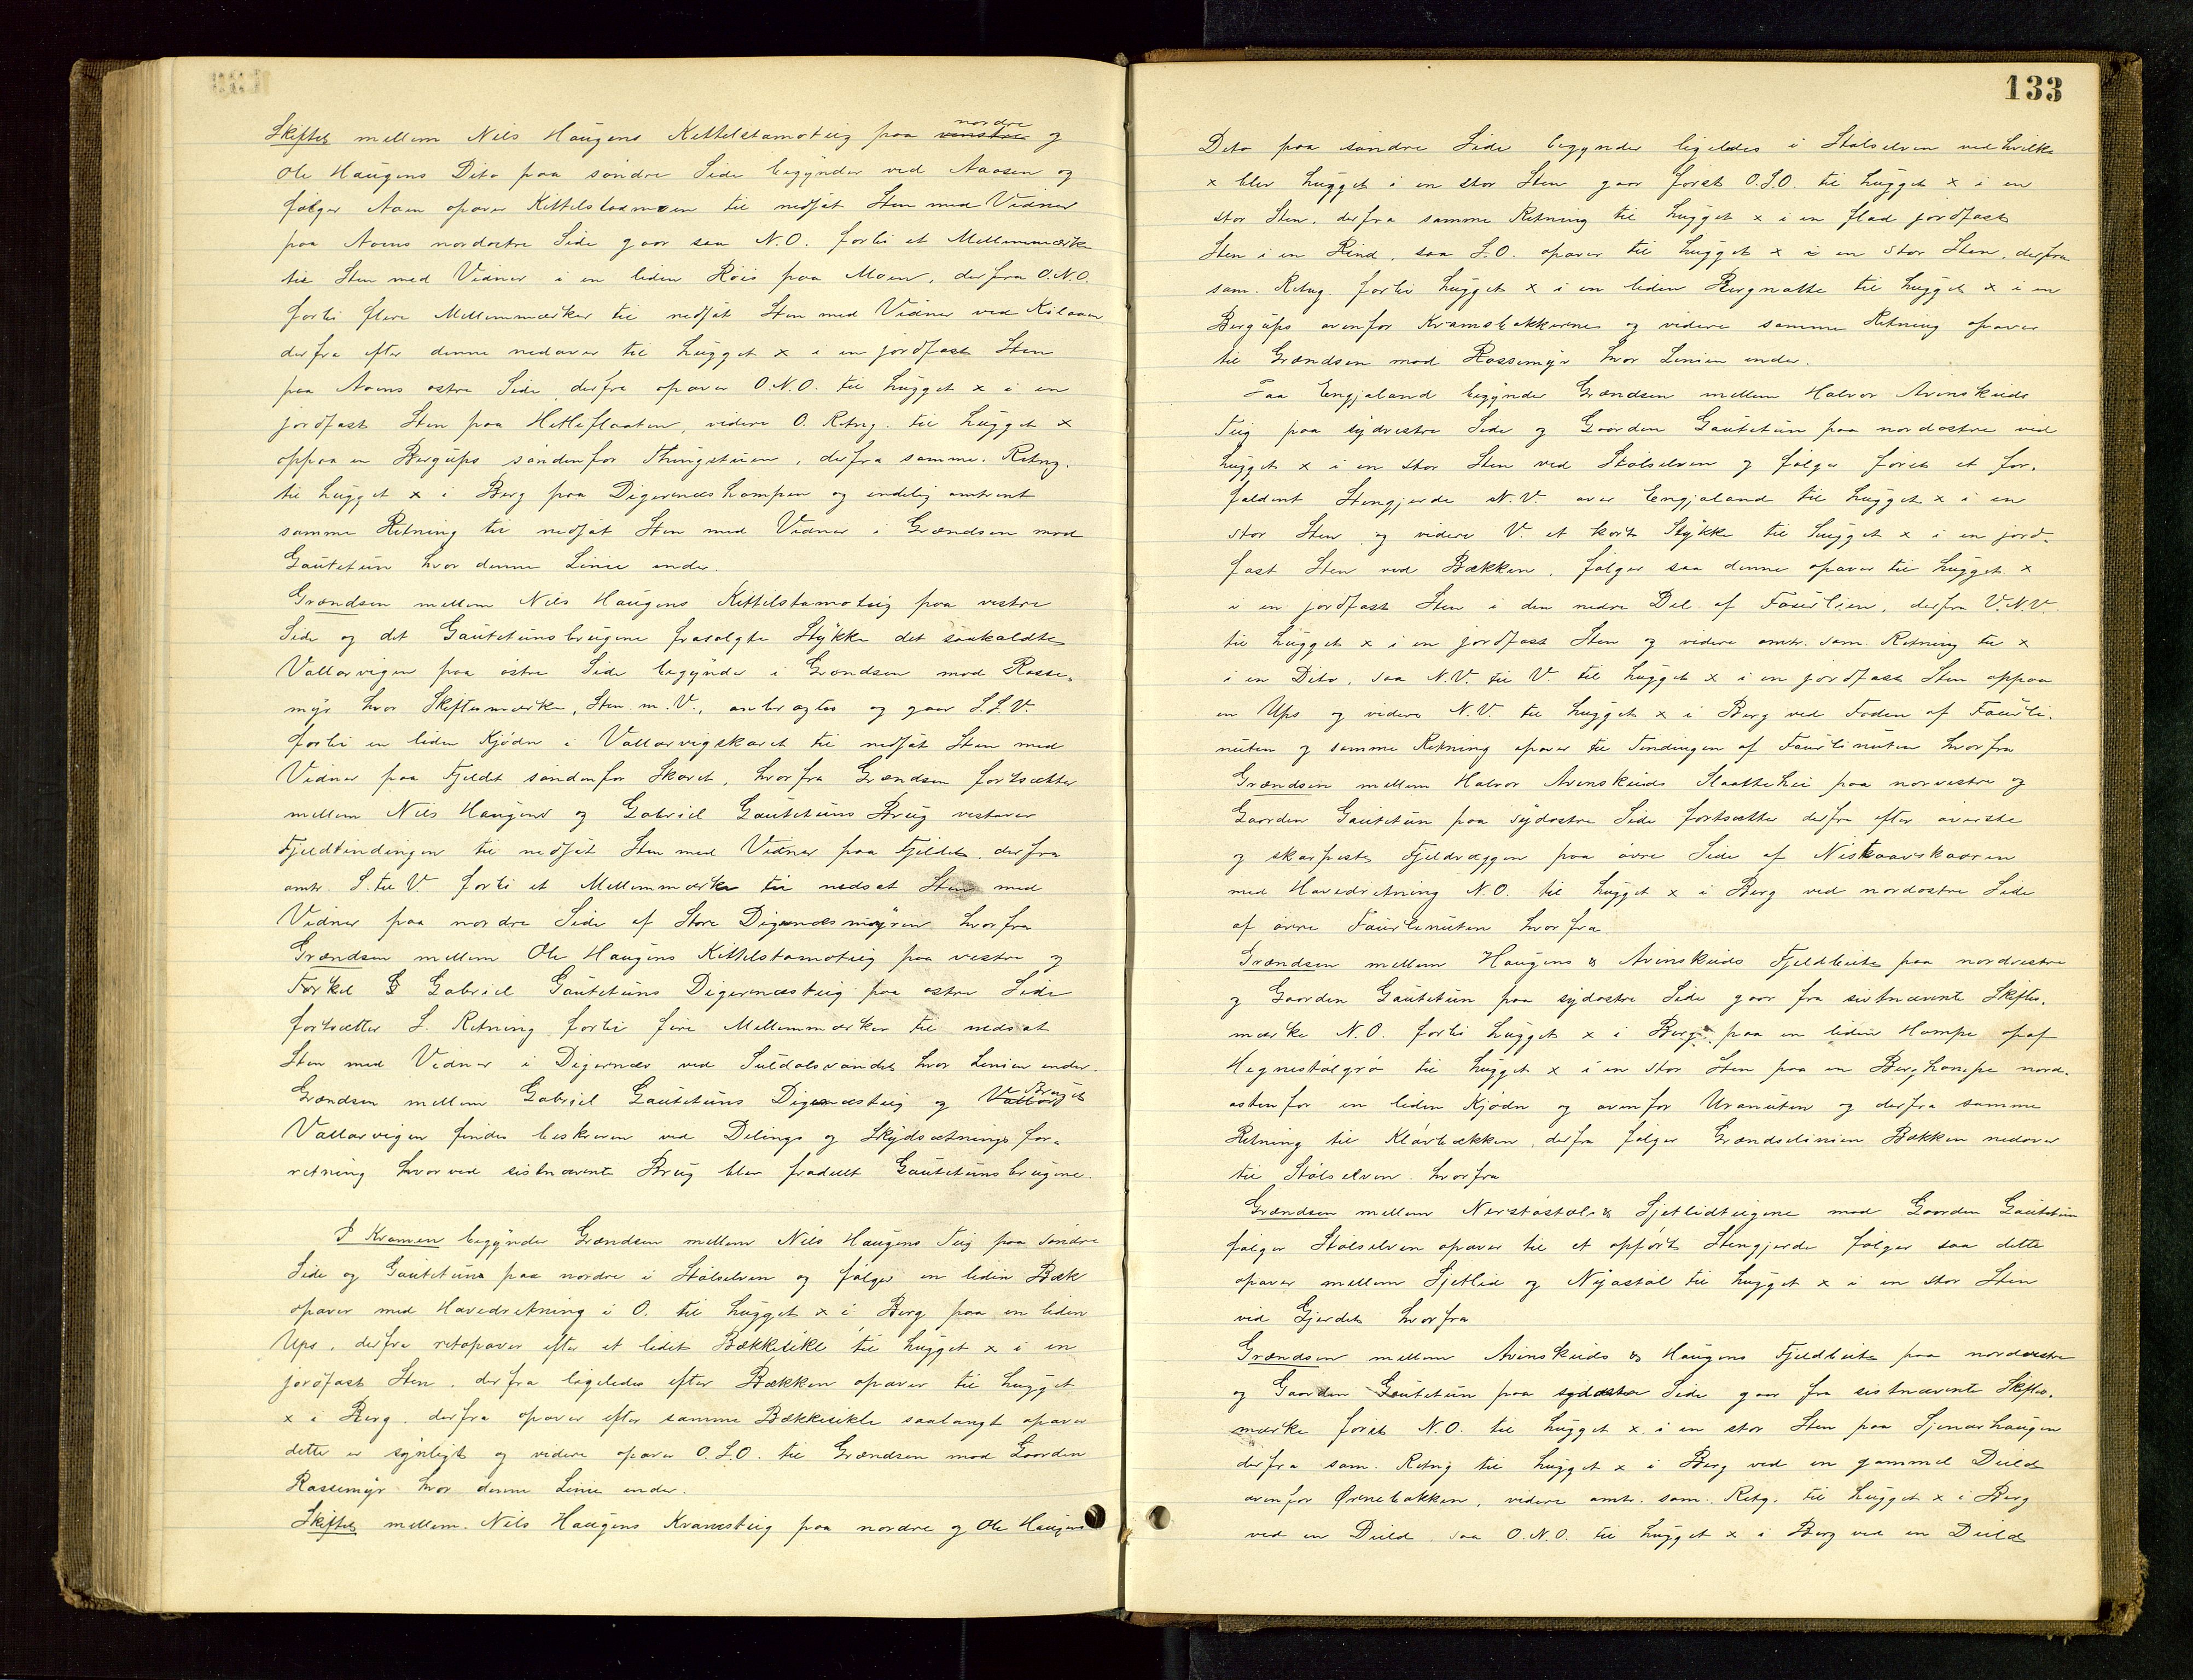 Skiftet mellem Nils Haugens Kittelstamoteig paa venstre nordre og
Ole Haugens Dito paa søndre Side begynder ved Aaosen og
følger Aaen opover Kittelstadmoen til nedsat Sten med Vidner
paa Aaens nordostre Side gaar saa N.O. forbi et Mellemmærke
til Sten med Vidner i en liden Röis paa Moen, derfra O.N.O.
forbi flere Mellemmærker til nedsat Sten med Vidner ved Kilaaen
derfra efter denne nedover til hugget x i en jordfast Sten
paa Aaens ostre Side, derfra opover O.N.O. til hugget x i en
jordfast Sten paa Hetteflaaten, videre O. Retng. til hugget x
oppaa en Bergups søndenfor Thingstuen, derfra samme Retng.
til hugget x i Berg paa Digernæshompen og endelig omtrent
samme Retning til nedsat Sten med Vidner i Grændsen mod
Gautetun hvor denne Linie ender.
Grændsen mellem Nils Haugens Kittelstamoteig paa vestre
Side og det Gautetunsbrugene frasolgte Stykke det saakaldte
Vallarvigen paa østre Side begynder i Grændsen mod Rosse-
myr hvor Skiftesmærke, Sten m. V., anbragtes og gaar S.S.V.
forbi en liden Kjødn i Vallarvigskaret til nedsat Sten med
Vidner paa Fjeldet søndenfor Skaret, hvorfra Grændsen fortsætter
mellem Nils Haugens og Gabriel Gautetuns Brug vestover
Fjeldtindingen til nedsat Sten med Vidner paa Fjeldet, derfra
omtr. S. til V. forbi et Mellemmærke til nedsat Sten med
Vidner paa nordre Side af Store Digernæsmyren hvorfra
Grændsen mellem Ole Haugens Kittelstamoteig paa vestre og
Torkel & Gabriel Gautetuns Digernæsteig paa østre Side
fortsætter S. Retning forbi fire Mellemmærker til nedsat
Sten med Vidner i Digernæs ved Suldalsvandet hvor Linien ender.
Grændsen mellem Gabriel Gautetuns Digernæsteig og Vallar Bruget
Vallarvigen findes beskreven ved Delings og Skydsætningsfor-
retning hvorved sistnævnte Brug blev fradelt Gautetunsbrugene.
I Kramen begynder Grændsen mellem Nils Haugens Teig paa søndre
Side og Gautetuns paa nordre i Stølselven og følger en liden Bæk
opover med Hovedretning i O. til hugget x i Berg paa en liden
Ups, derfra retopover efter et lidet Bækkesikle til hugget x i en
jordfast Sten, derfra ligeledes efter Bækken opover til hugget
x i Berg, derfra opover efter samme Bækkesikle saalangt opover
dette er synligt og videre opover O.S.O. til Grændsen mod Gaarden
Rossemyr hvor denne Linie ender.
Skiftet mellem Nils Haugens Kramsteig paa nordre og Ole Haugens
133
Dito paa søndre Side begynder ligeledes i Stølselven ved hvilke
x blev hugget i en stor Sten gaar først O.S.O. til hugget x i en
stor Sten, derfra samme Retning til hugget x i en flad jordfast
Sten i en Rind, saa S.O. opover til hugget x i en stor Sten, derfra
sam. Retng. forbi hugget x i en liden Bergnatte til hugget x i en
Bergups ovenfor Kramsbakkerne og videre samme Retning opover
til Grændsen mod Rossemyr hvor Linien ender.
Paa Engjaland begynder Grændsen mellem Halvor Avinskeids
Teig paa sydvestre Side og Gaarden Gautetun paa nordostre ved
hugget x i en stor Sten ved Stølselven og følger først et for-
faldent Stengjerde N.V. over Engjaland til hugget x i en
stor Sten og videre V. et kort Stykke til hugget x i en jord-
fast Sten ved Bækken, følger saa denne opover til hugget x
i en jordfast Sten i den nedre Del af Faurlien, derfra V.N.V.
til hugget x i en jordfast Sten og videre omtr. sam. Retning til x
i en Dito, saa N.V. til V. til hugget x i en jordfast Sten oppaa
en Ups og videre N.V. til hugget x i Berg ved Foden af Faurli-
nuten og samme Retning opover til Tindingen af Faurlinuten hvorfra
Grændsen mellem Halvor Avinskeids Slaattehei paa norvestre og
Gaarden Gautetun paa sydostre Side fortsætter derfra efter øverste
og skarpeste Fjeldvæggen paa øvre Side af Niskaarskaaren
med Hovedretning N.O. til hugget x i Berg ved nordostre Side
af øvre Faurlinuten hvorfra
Grændsen mellem Haugens & Avinskeids Fjeldbeite paa nordvestre
og Gaarden Gautetun paa sydostre Side gaar fra sistnævnte Skiftes-
mærke N.O. forbi hugget x i Berg paa en liden Hompe opaf
Hegnestølgrø til hugget x i en stor Sten paa en Berghompe nord-
ostenfor en liden Kjødn og ovenfor Uranuten og derfra samme
Retning til Kløvbækken, derfra følger Grændselinien Bækken nedover
til Stølselven hvorfra
Grændsen mellem Nerstøstøl & Sjetlidteigene mod Gaarden Gautetun
følger Stølselven opover til et opført Stengjerde følger saa dette
opover mellem Sjetlid og Nyastøl til hugget x i en stor Sten
ved Gjerdet hvorfra
Grændsen mellem Avinskeids & Haugens Fjeldbeite paa nordvestre
og Gaarden Gautetun paa sydostre Side gaar fra sistnævnte Skiftes-
mærke først N.O. til hugget x i en stor Sten paa Sjenarhaugen
derfra sam. Retng til hugget x i Berg ved en gammel Dield
ovenfor Ørnebakken, videre omtr. sam. Retg. til hugget x i Berg
ved en Dield, saa O.N.O. til hugget x i Berg ved en Dield